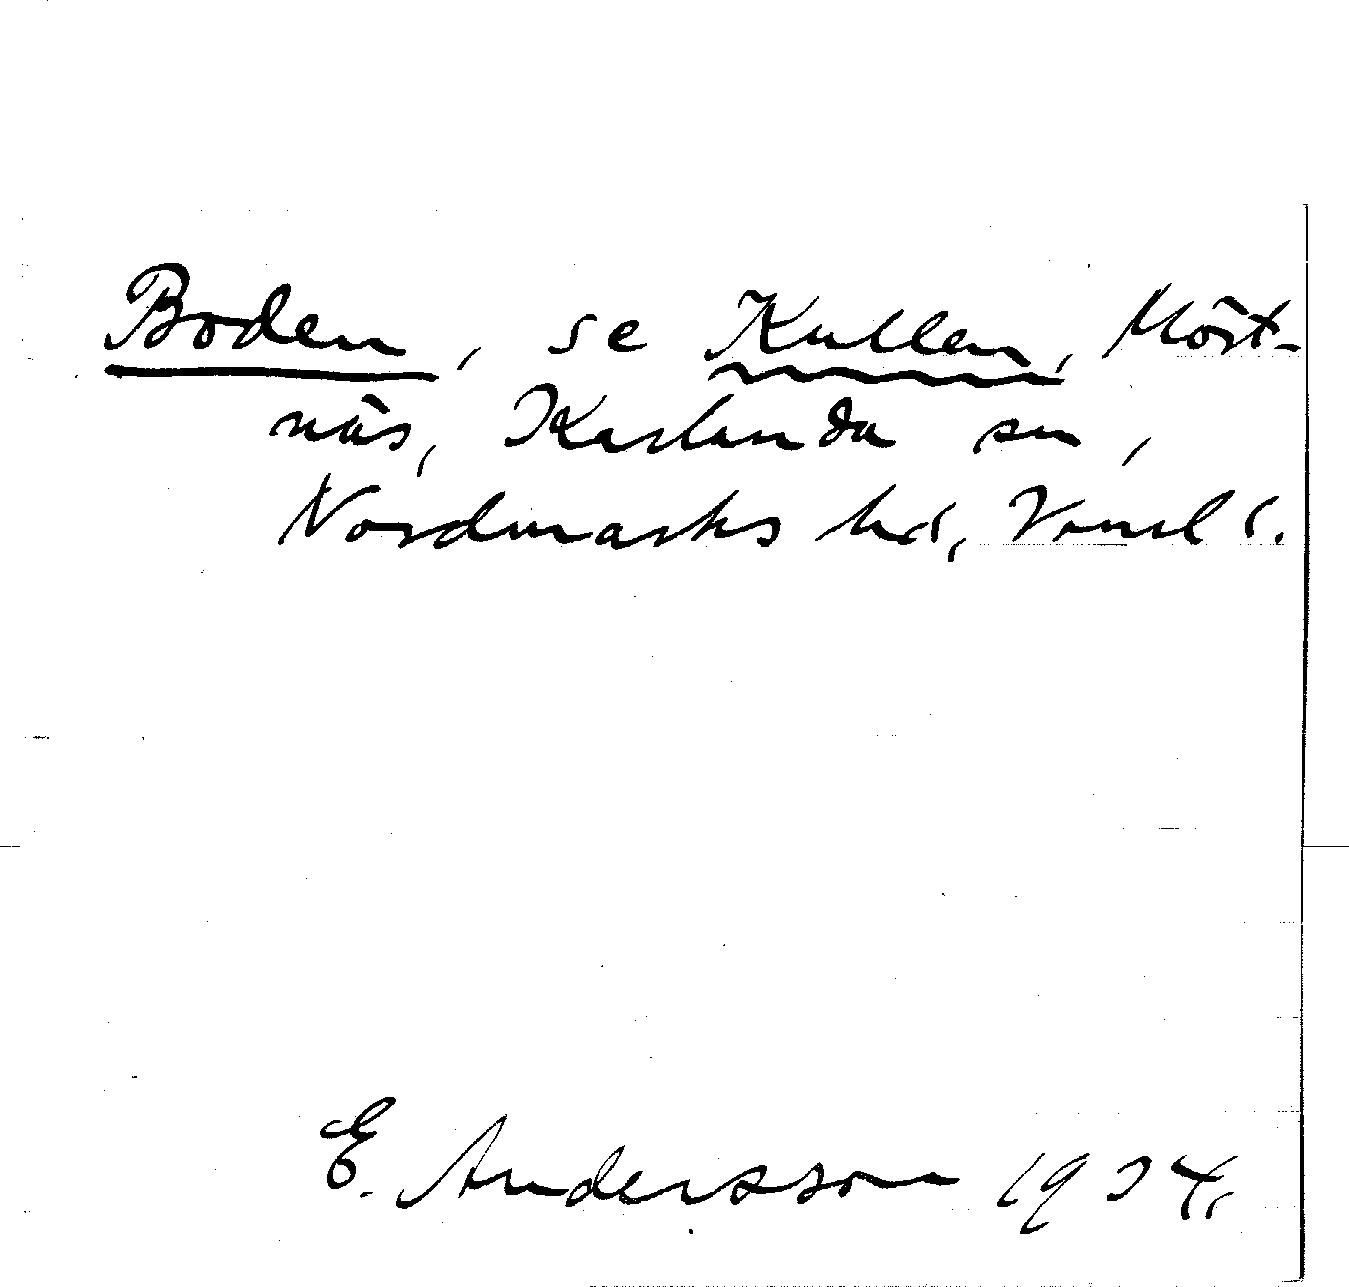 Boden, se Kullen, Möst-
näs, Karlanda sn,
Nordmarks hd, Värml.
E. Andersson 1934.